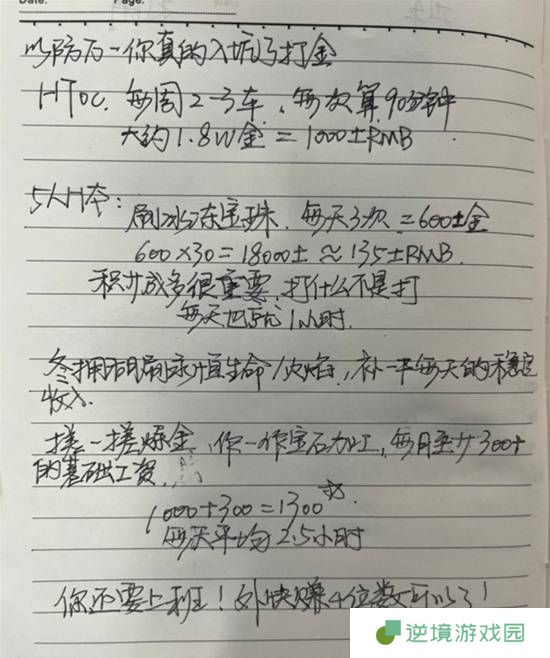 Date:
Page:
以防万一你真的入坑了打金
HTOC.每周2-3车,每次算90分钟
大约1.8W金=1000±RMB
5人H本:
刷冰冻宝珠.每天3次=600±金
600×30=18000±≈135±RMB.
积少成多很重要,打什么不是打
每天也就1小时.
冬拥湖刷永恒生命/火焰,补一下每天的稳定
收入.
搓一搓炼金,你一作宝石加工,每月至少300+
的基础工资.
1000+300=1300
每天平均2.5小时
你还要上班!外快赚4位数可以了!
逆境游戏园